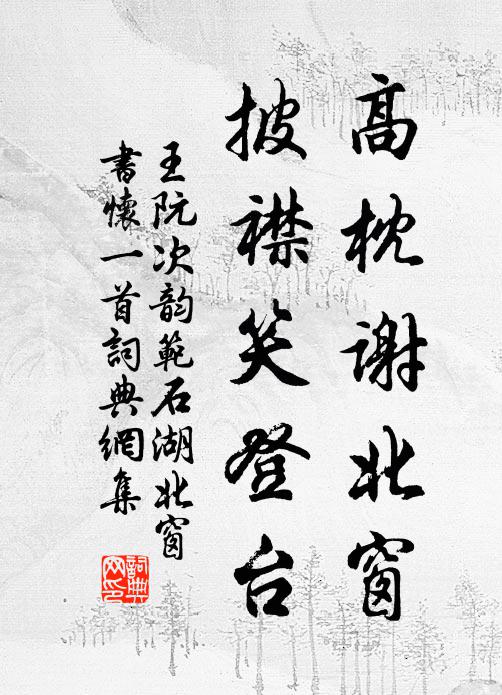 高枕谢北窗
披襟笑登台
王阮次韵範石湖北窗
書懷一首詞典網集
詞典网印